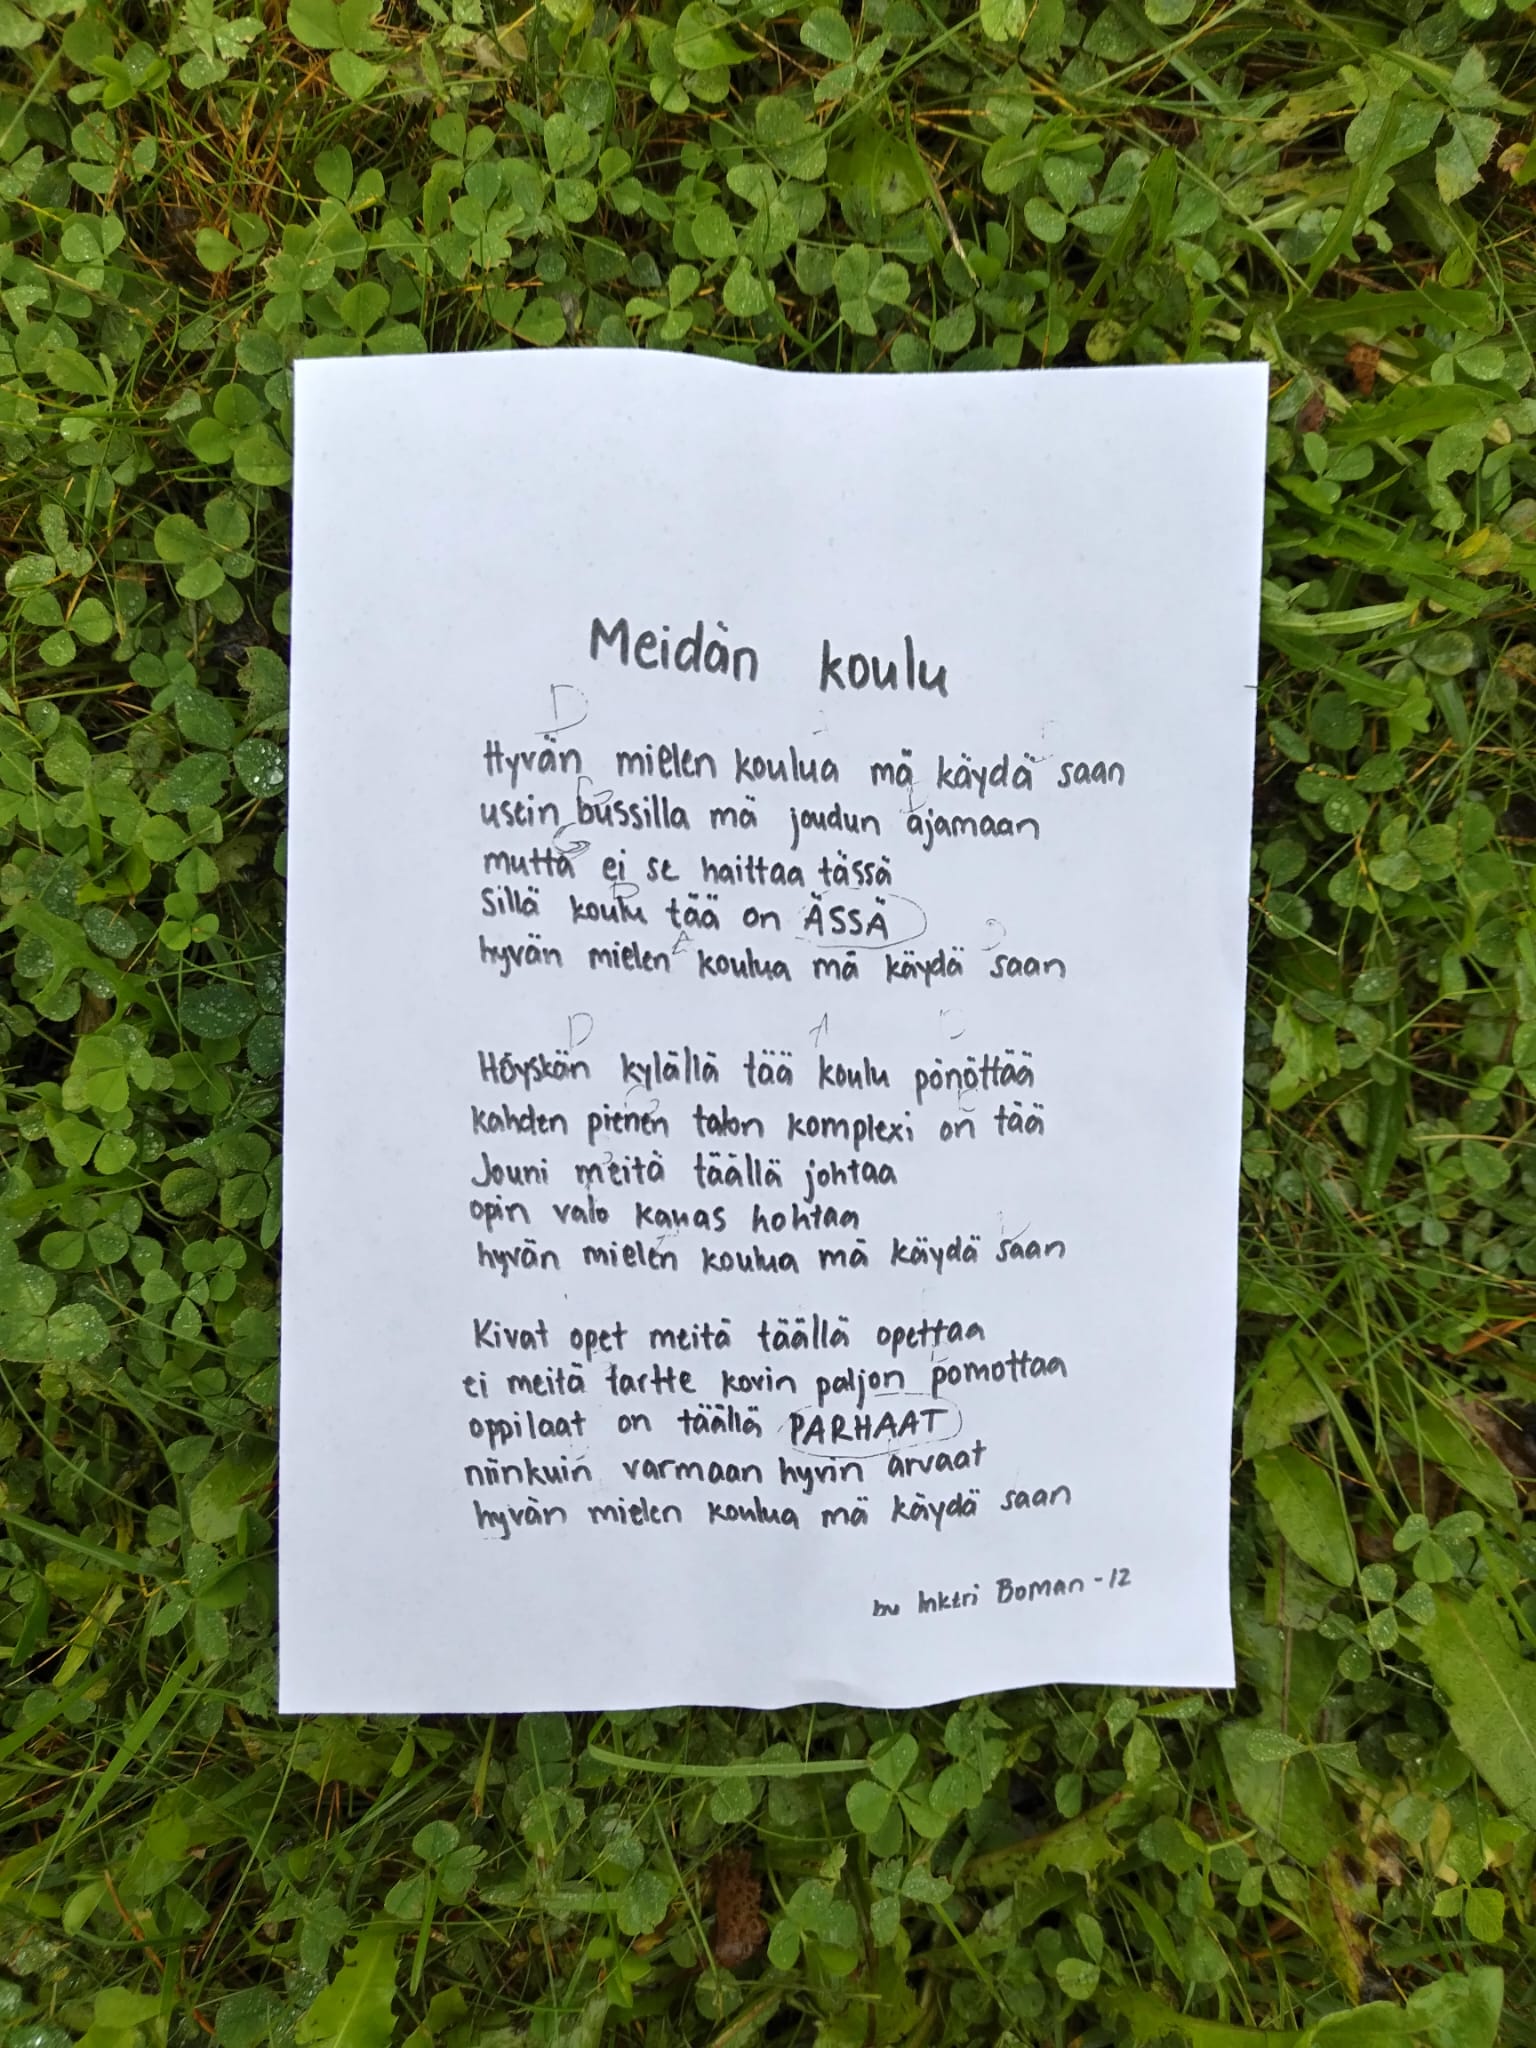 Meidän koulu
D
Hyvän mielen koulua mä käydä saan
G
usein bussilla mä joudun ajamaan
G
mutta ei se haittaa tässä
D
sillä koulu tää on ÄSSÄ
A D
hyvän mielen koulua mä käydä saan
D A D
Höyskän kylällä tää koulu pönöttää
G
kahden pienen talon komplexi on tää
Jouni meitä täällä johtaa
opin valo kauas hohtaa
hyvän mielen koulua mä käydä saan
Kivat opet meitä täällä opettaa
ei meitä tartte kovin paljon pomottaa
oppilaat on täällä PARHAAT
niinkuin varmaan hyvin arvaat
hyvän mielen koulua mä käydä saan
by Boman -12